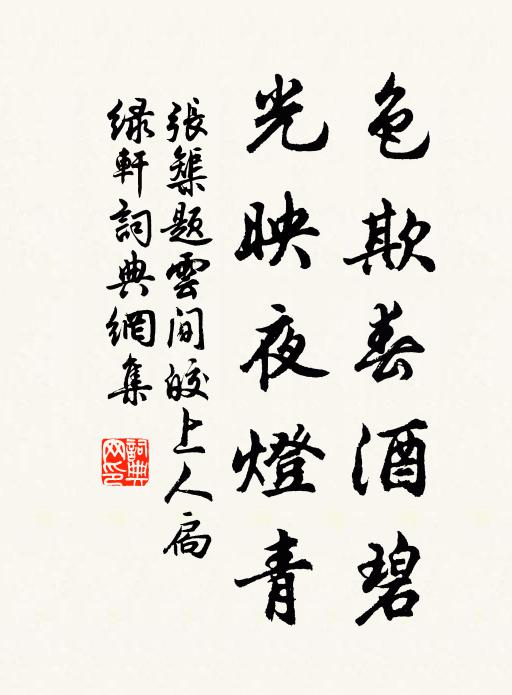 色欺春酒碧
光映夜燈青
張榘題雲间皎上人扃
绿軒詞典網集
詞典
网印